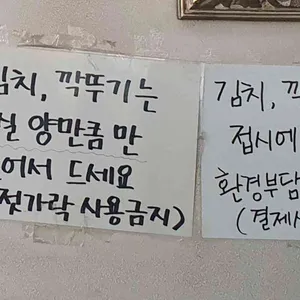 김치, 깍뚜기는
양만큼 만
어서 드세요
젓가락 사용금지)
김치,
접시에
환경부담
(결제